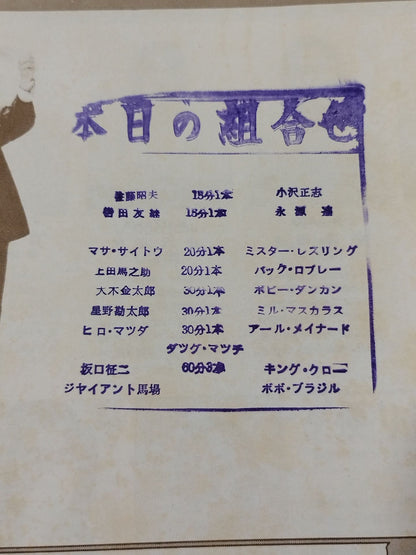 本日の組合せ
佐藤昭夫 15分1本 小沢正志
誉田友継 15分1本 永源遙
マサ・サイトウ 20分1本 ミスター・レスリング
上田馬之助 20分1本 バック・ロブレー
大木金太郎 30分1本 ボビー・ダンカン
星野勘太郎 30分1本 ミル・マスカラス
ヒロ・マツダ 30分1本 アール・メイナード
ダツグ・マツチ
坂口征二 60分3本 キング・クロー
ジヤイアント馬場 ボボ・ブラジル